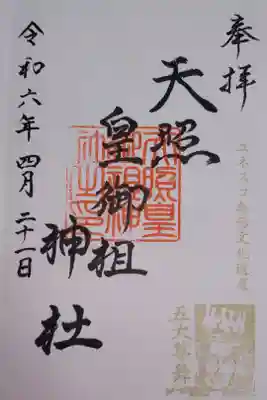 奉拝
天照
皇御祖
神社
令和六年四月二十一日
ユネスコ無形文化遺産